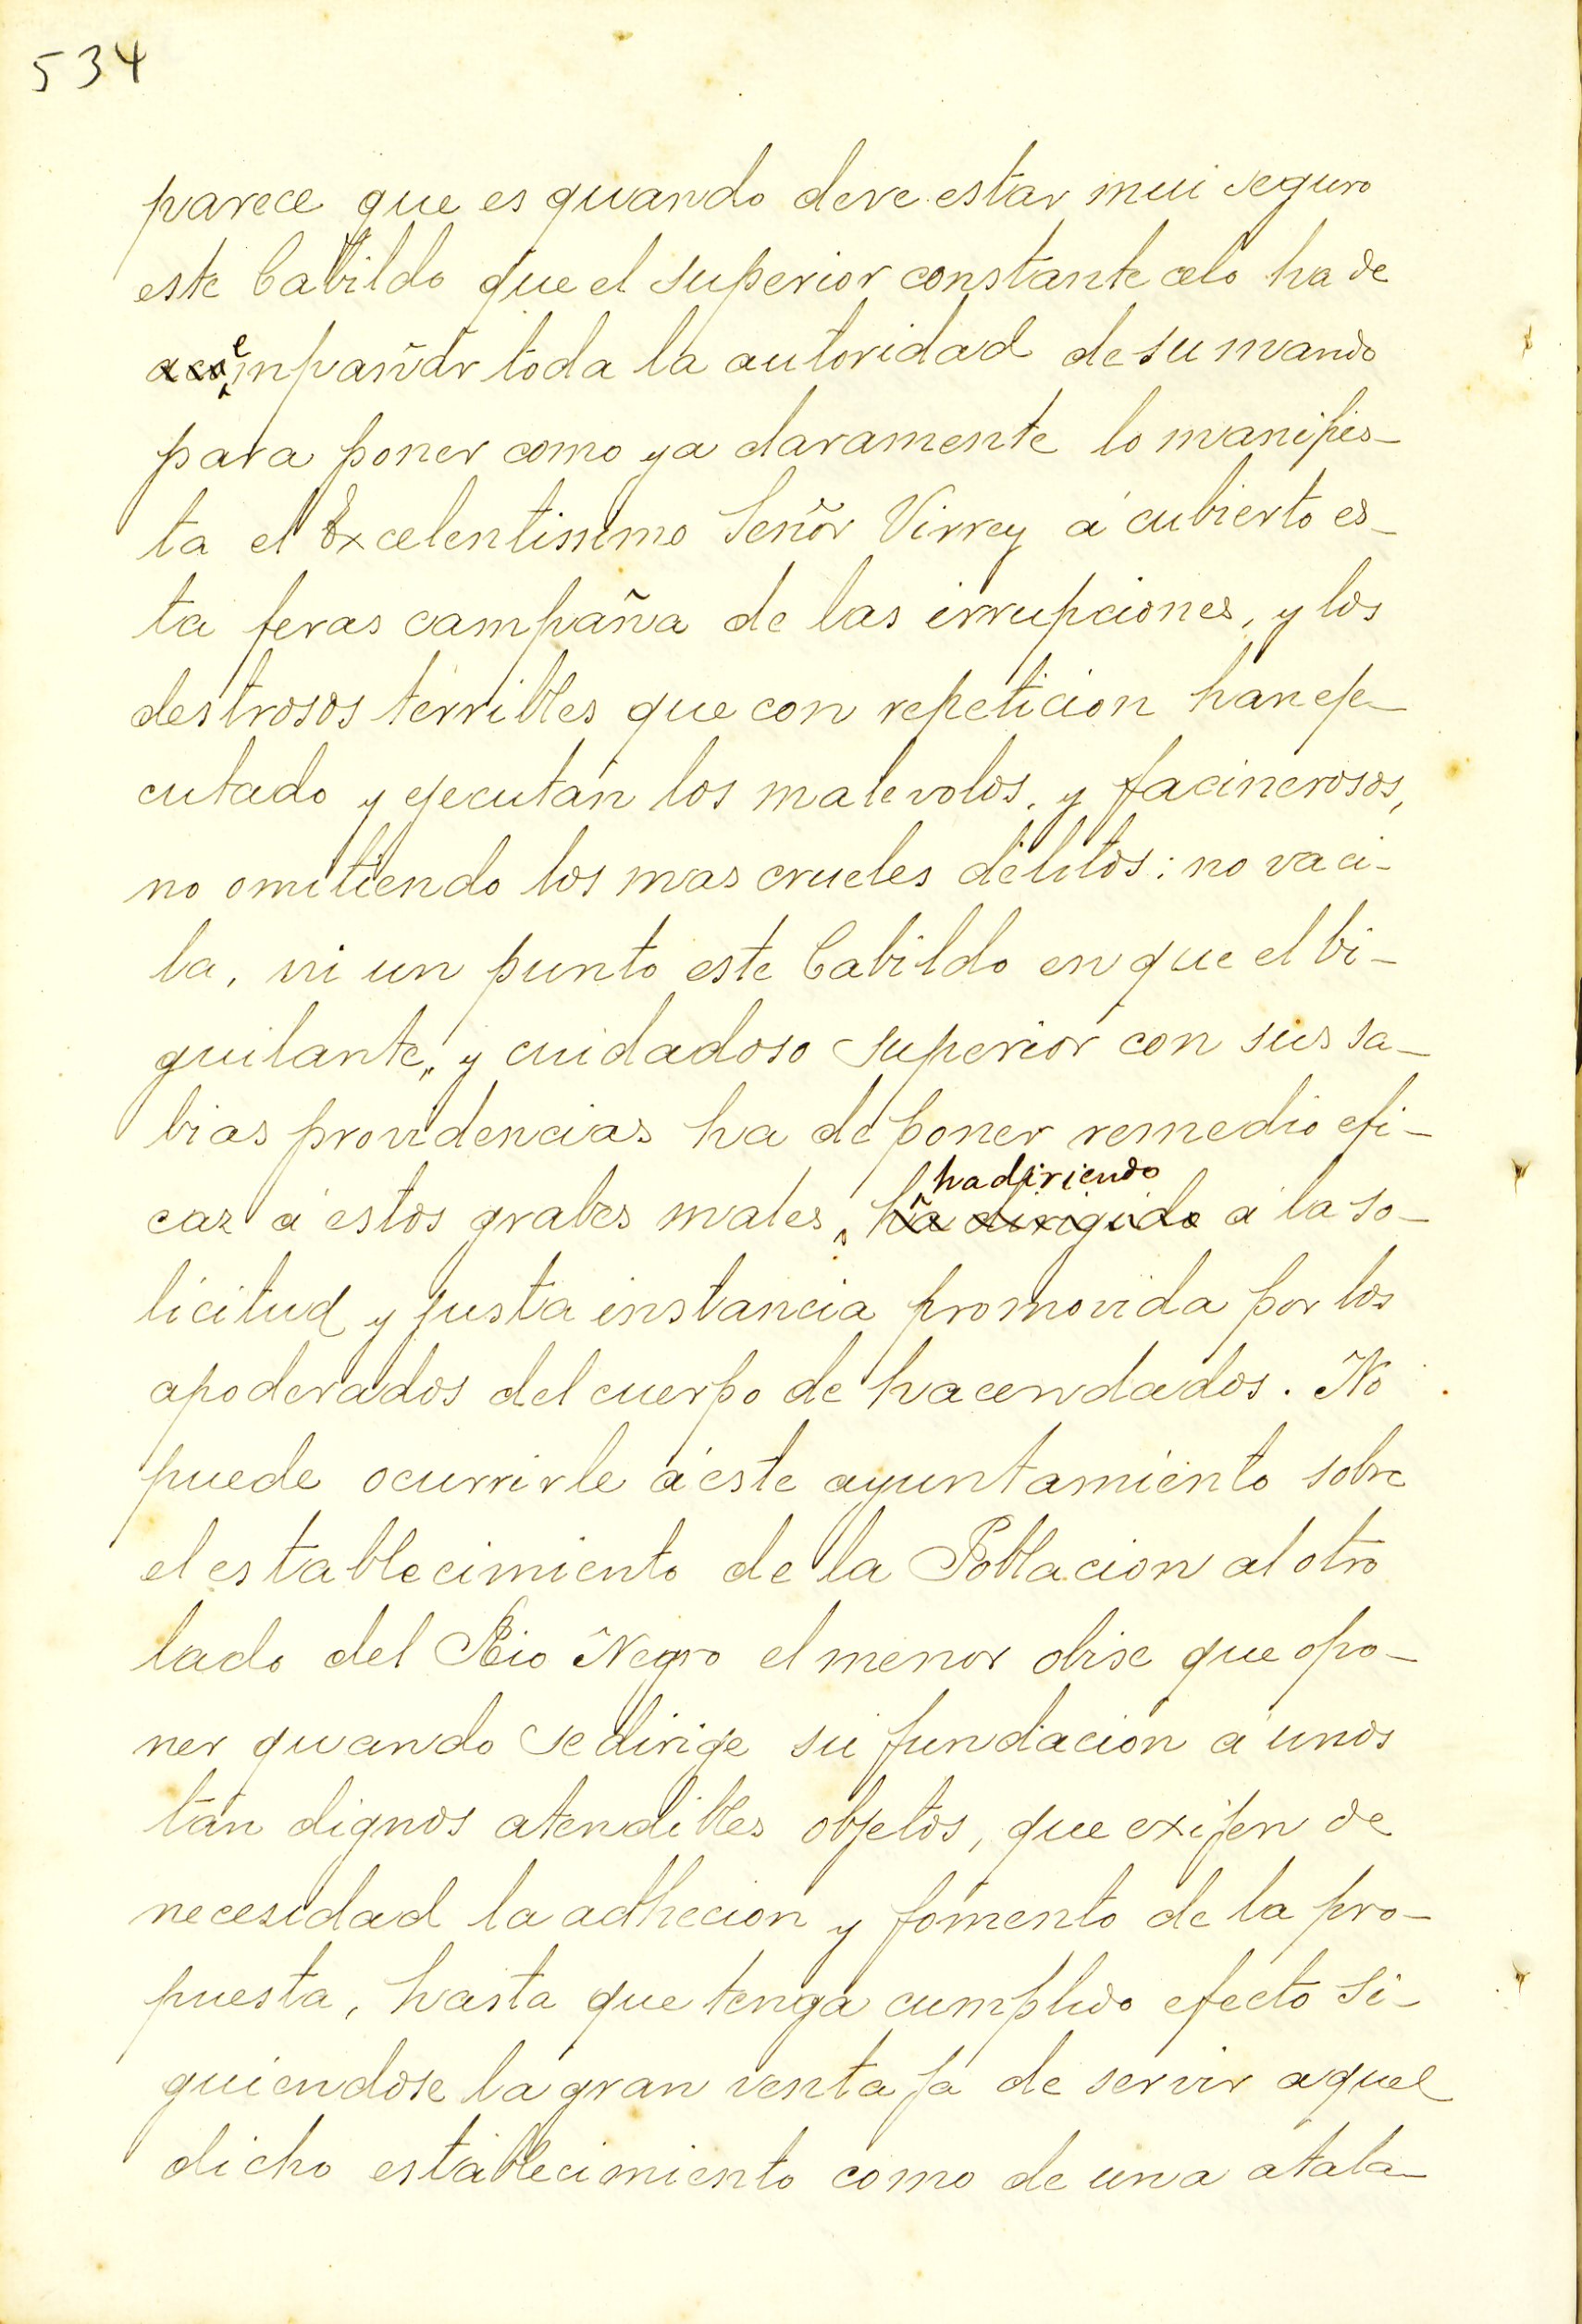 534
parece que es quando deve estar mui seguro
este Cabildo que el superior constante celo ha de
enpañar toda la autoridad de su mando
para poner como ya claramente lo manifies-
ta el Excelentissimo Señor Virrey á cubierto es-
ta feras campaña de las irrupciones, y los
destrosos terribles que con repeticion han eje-
cutado y ejecután los malevolos, y facinerosos,
no omitiendo los mas crueles delitos: no vaci-
la, ni un punto este Cabildo en que el bi-
guilante, y cuidadoso superior con sus sa-
bias providencias ha de poner remedio efi-
caz á estos grabes males, hadiriendo
ha dirigido á la so-
licitud y justa instancia promovida por los
apoderados del cuerpo de hacendados. No
puede ocurrirle á este ayuntamiento sobre
el establecimiento de la Poblacion al otro
lado del Rio Negro el menor obise que opo-
ner quando se dirige su fundacion a unos
tan dignos atendibles objetos, que exijen de
necesidad la adhecion y fomento de la pro-
puesta, hasta que tenga cumplido efecto si-
guiendose la gran ventaja de servir aquel
dicho establecimiento como de una atala-